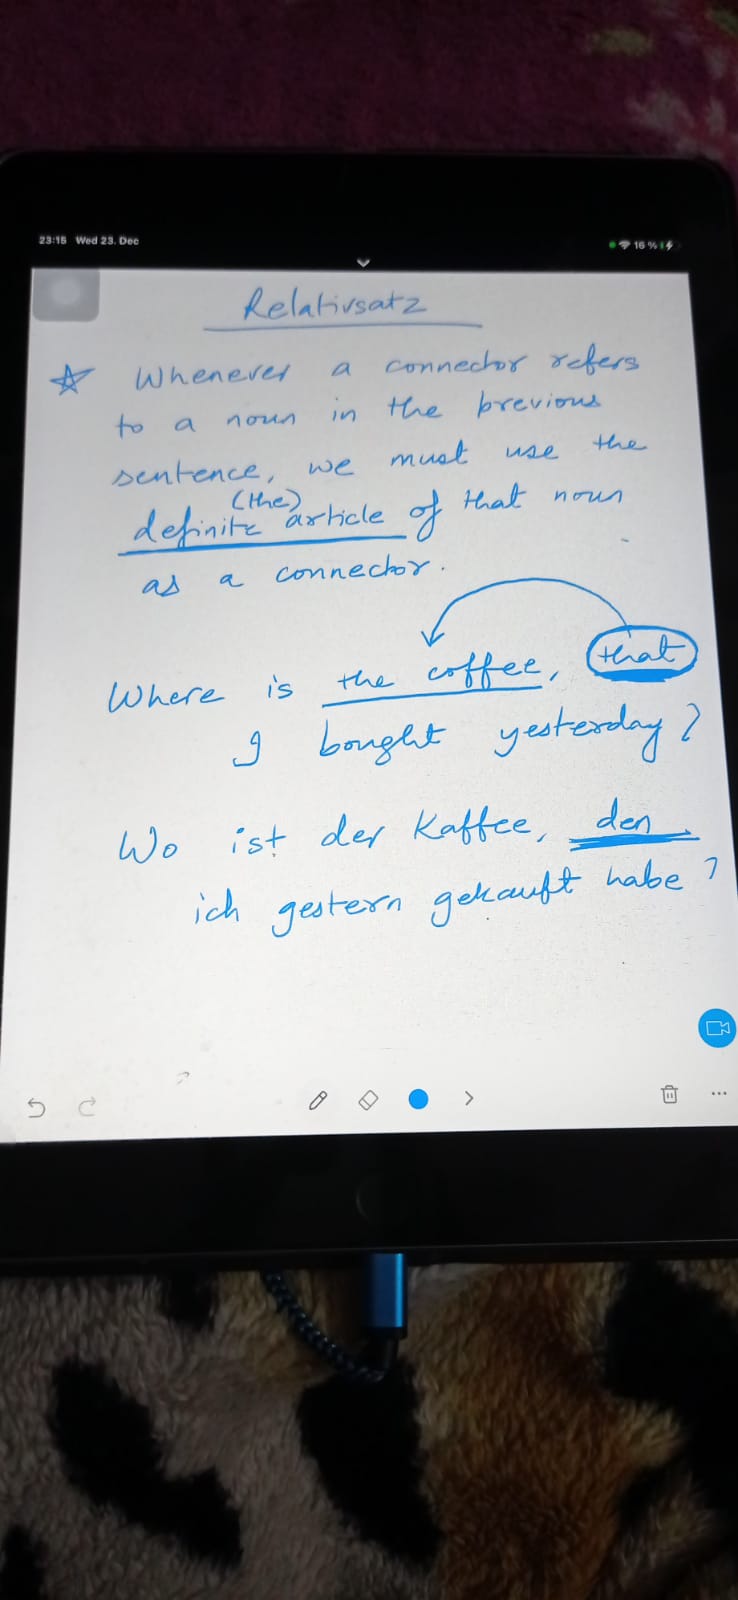 23:15 Wed 23. Dec
16 %
Relativsatz
☆ Whenever a connector refers
to a noun in the previous
sentence, we must use the
(the)
definite article of that noun
as a connector.
Where is the coffee, that
I bought yesterday?
Wo ist der Kaffee, den
ich gestern gekauft habe?